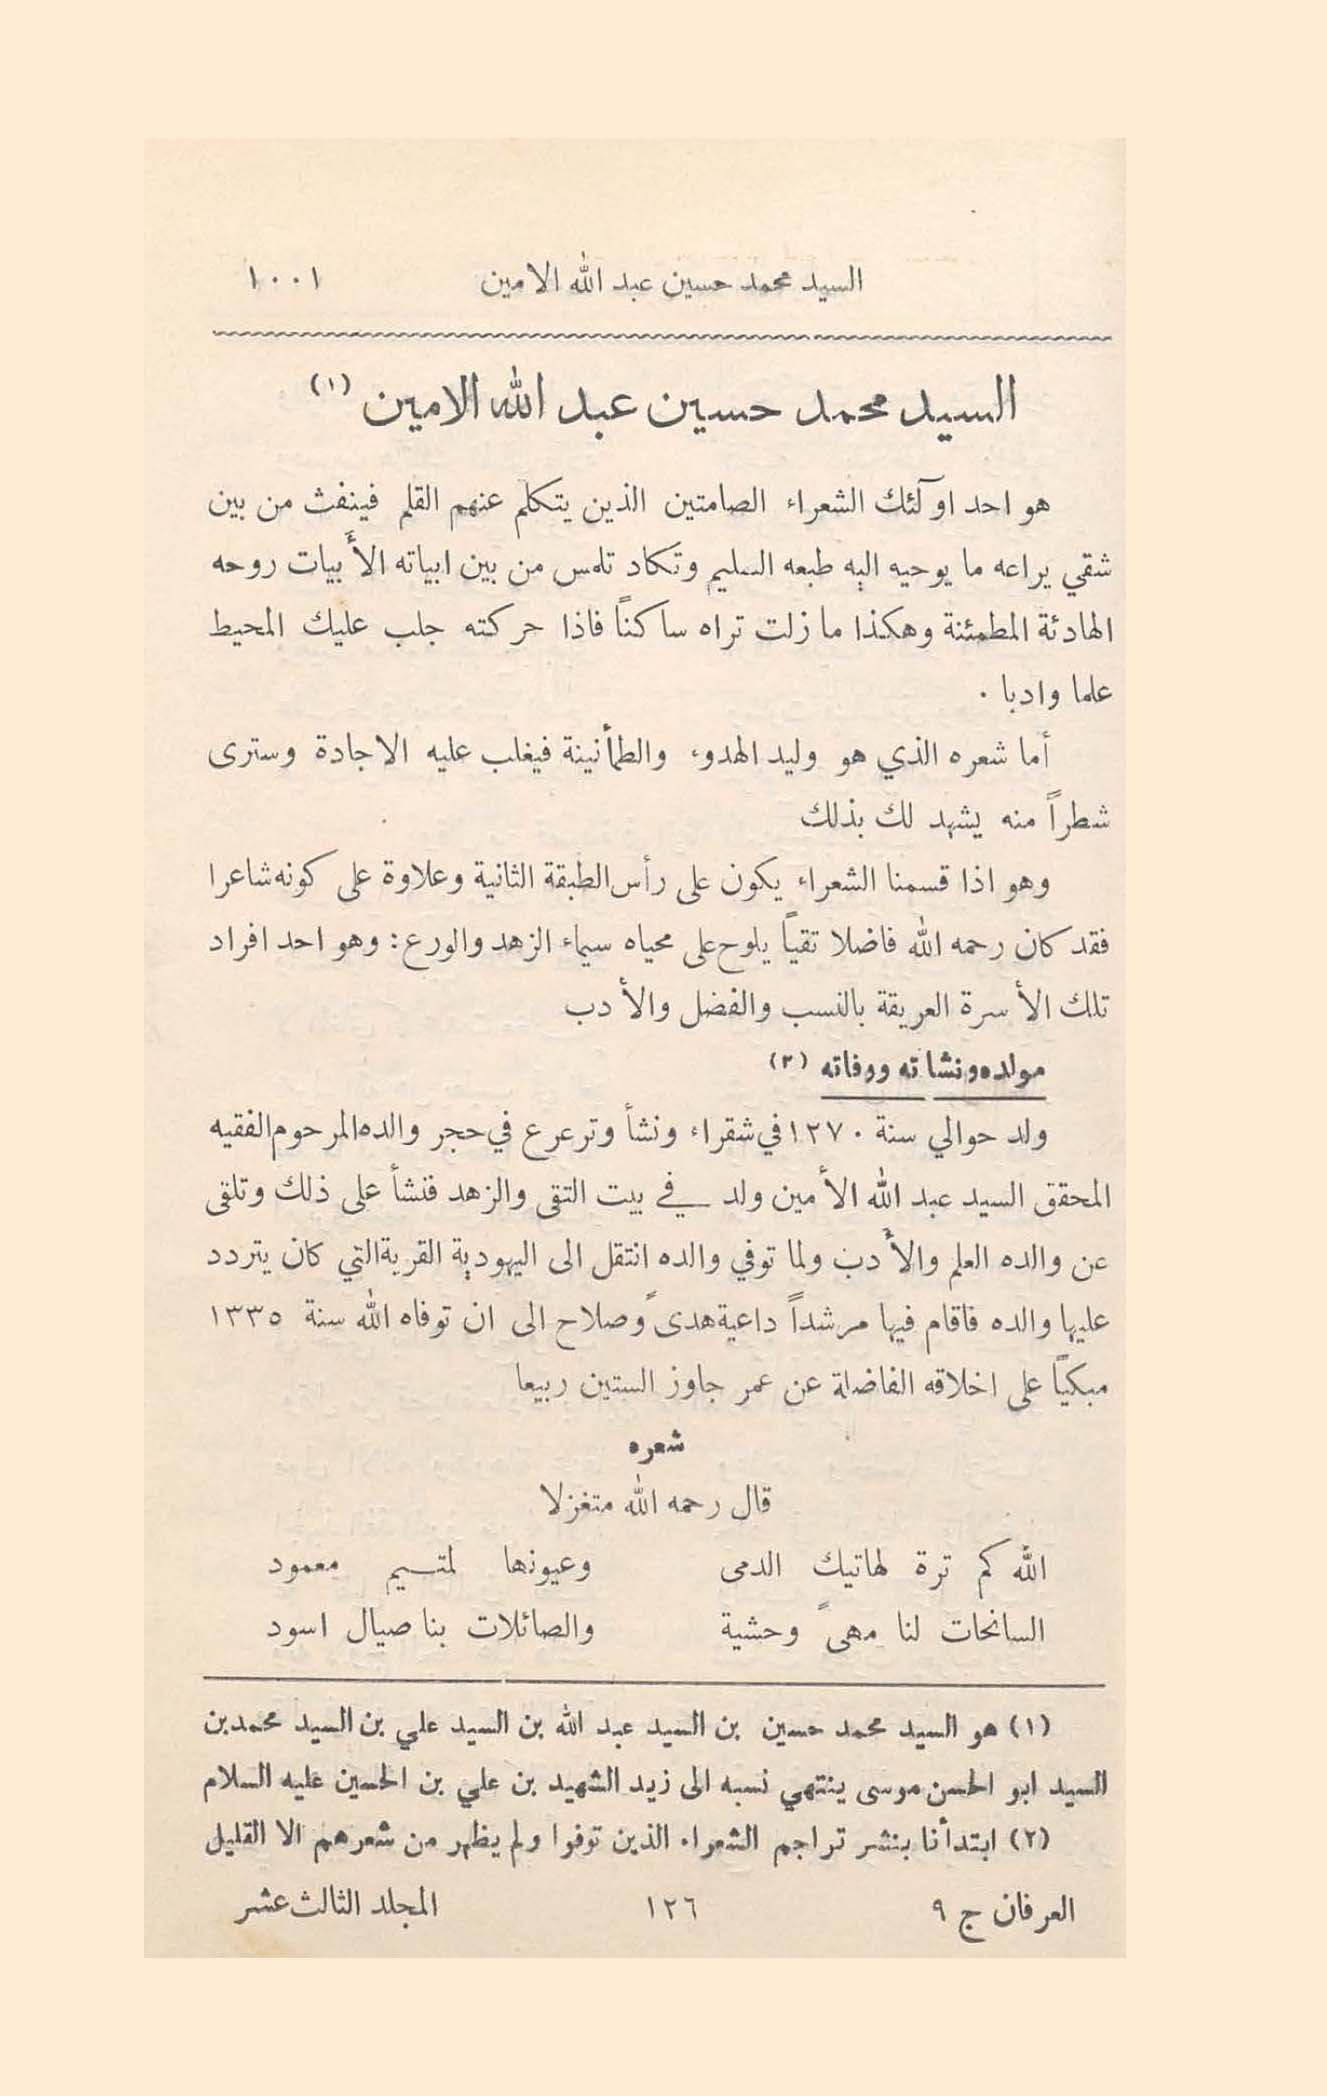 السيد محمد حسين عبد الله الامين ١٠٠١
السيد محمد حسين عبد الله الامين (١)
هو احد اولئك الشعراء الصامتين الذين يتكلم عنهم القلم فينفث من بين
شقي يراعه ما يوحيه اليه طبعه السليم وتكاد تلمس من بين ابياته الأبيات روحه
الهادئة المطمئنة وهكذا ما زلت تراه ساكناً فاذا حركته جلب عليك المحيط
علما وادبا .
أما شعره الذي هو وليد الهدوء والطمأنينة فيغلب عليه الاجادة وسترى
شطراً منه يشهد لك بذلك
وهو اذا قسمنا الشعراء يكون على رأس الطبقة الثانية وعلاوة على كونه شاعرا
فقد كان رحمه الله فاضلا تقياً يلوح على محياه سيماء الزهد والورع : وهو احد افراد
تلك الأسرة العريقة بالنسب والفضل والأدب
مولده ونشاته ووفاته (٢)
ولد حوالي سنة ١٢٧٠ في شقراء ونشأ وترعرع في حجر والده المرحوم الفقيه
المحقق السيد عبد الله الأمين ولد في بيت التقى والزهد فنشأ على ذلك وتلقى
عن والده العلم والأدب ولما توفي والده انتقل الى اليهودية القرية التي كان يتردد
عليها والده فاقام فيها مرشداً داعية هدىً وصلاح الى ان توفاه الله سنة ١٣٣٥
مبكياً على اخلاقه الفاضلة عن عمر جاوز الستين ربيعا
شعره
قال رحمه الله متغزلا
الله كم ترة لهاتيك الدمى وعيونها لمتيم معمود
السانحات لنا مهىً وحشية والصائلات بنا صيال اسود
(١) هو السيد محمد حسين بن السيد عبد الله بن السيد علي بن السيد محمد بن
السيد ابو الحسن موسى ينتهي نسبه الى زيد الشهيد بن علي بن الحسين عليه السلام
(٢) ابتدأنا بنشر تراجم الشعراء الذين توفوا ولم يظهر من شعرهم الا القليل
العرفان ج ٩ ١٢٦ المجلد الثالث عشر